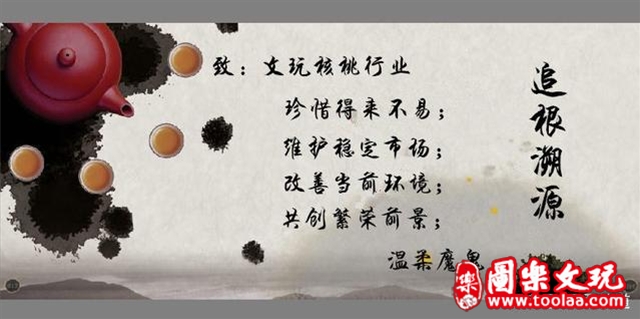 致：文玩核桃行业
珍惜得来不易；
维护稳定市场；
改善当前环境；
共创繁荣前景；
温柔魔鬼
追根溯源
圖樂文玩
www.toolaa.com